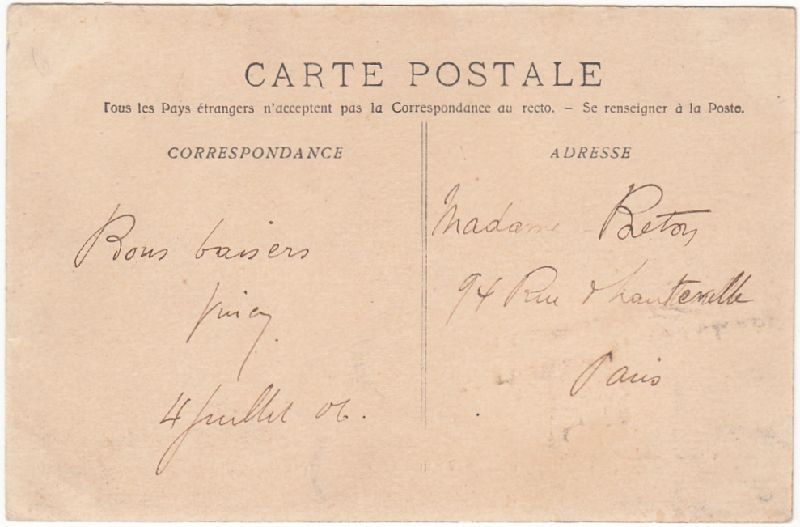 CARTE POSTALE
Tous les Pays étrangers n'acceptent pas la Correspondance au recto. – Se renseigner à la Poste.
CORRESPONDANCE
Bons baisers
4 Juillet 06.
ADRESSE
Madame Breton
94 Rue d'hauteville
Paris